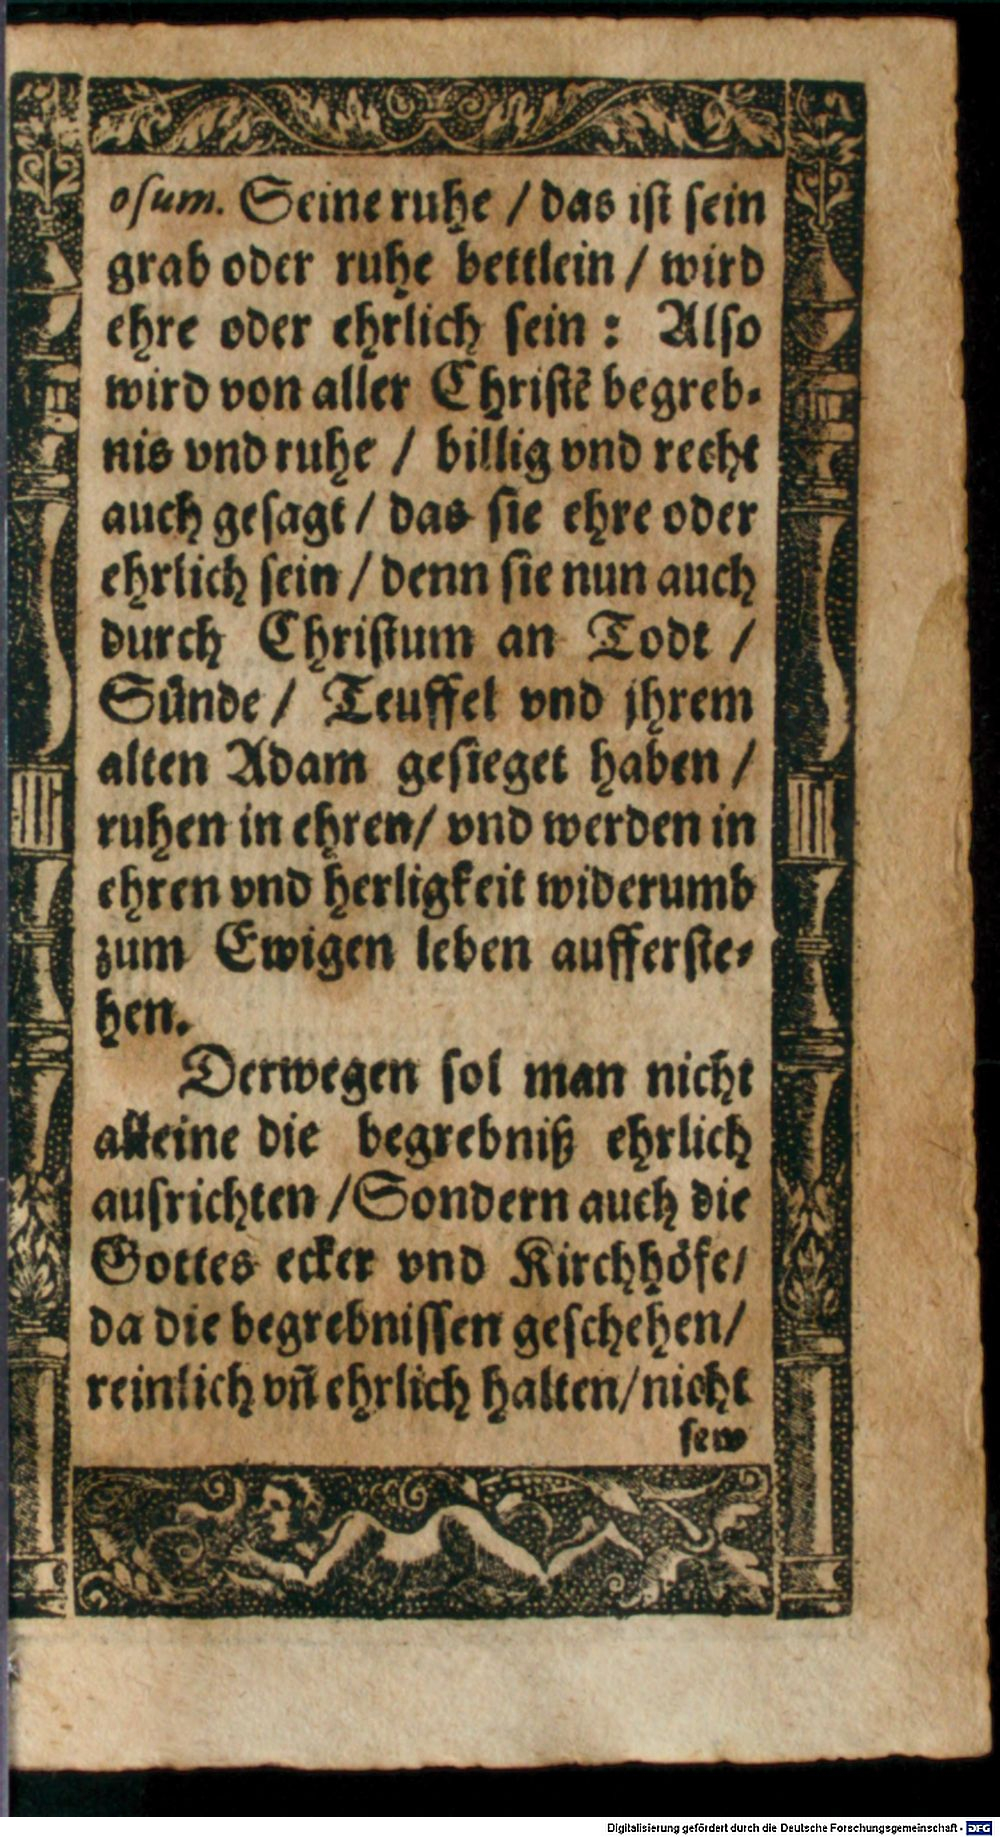 osum. Seine ruhe / das ist sein
grab oder ruhe bettlein / wird
ehre oder ehrlich sein : Also
wird von aller Christẽ begreb-
nis vnd ruhe / billig vnd recht
auch gesagt / das sie ehre oder
ehrlich sein / denn sie nun auch
durch Christum an Todt /
Sünde / Teuffel vnd jhrem
alten Adam gesieget haben /
ruhen in ehren / vnd werden in
ehren vnd herligkeit widerumb
zum Ewigen leben aufferste-
hen.
Derwegen sol man nicht
alleine die begrebniß ehrlich
ausrichten / Sondern auch die
Gottes ecker vnd Kirchhöfe /
da die begrebnissen geschehen /
reinlich vñ ehrlich halten / nicht
sew
Digitalisierung gefördert durch die Deutsche Forschungsgemeinschaft - DFG